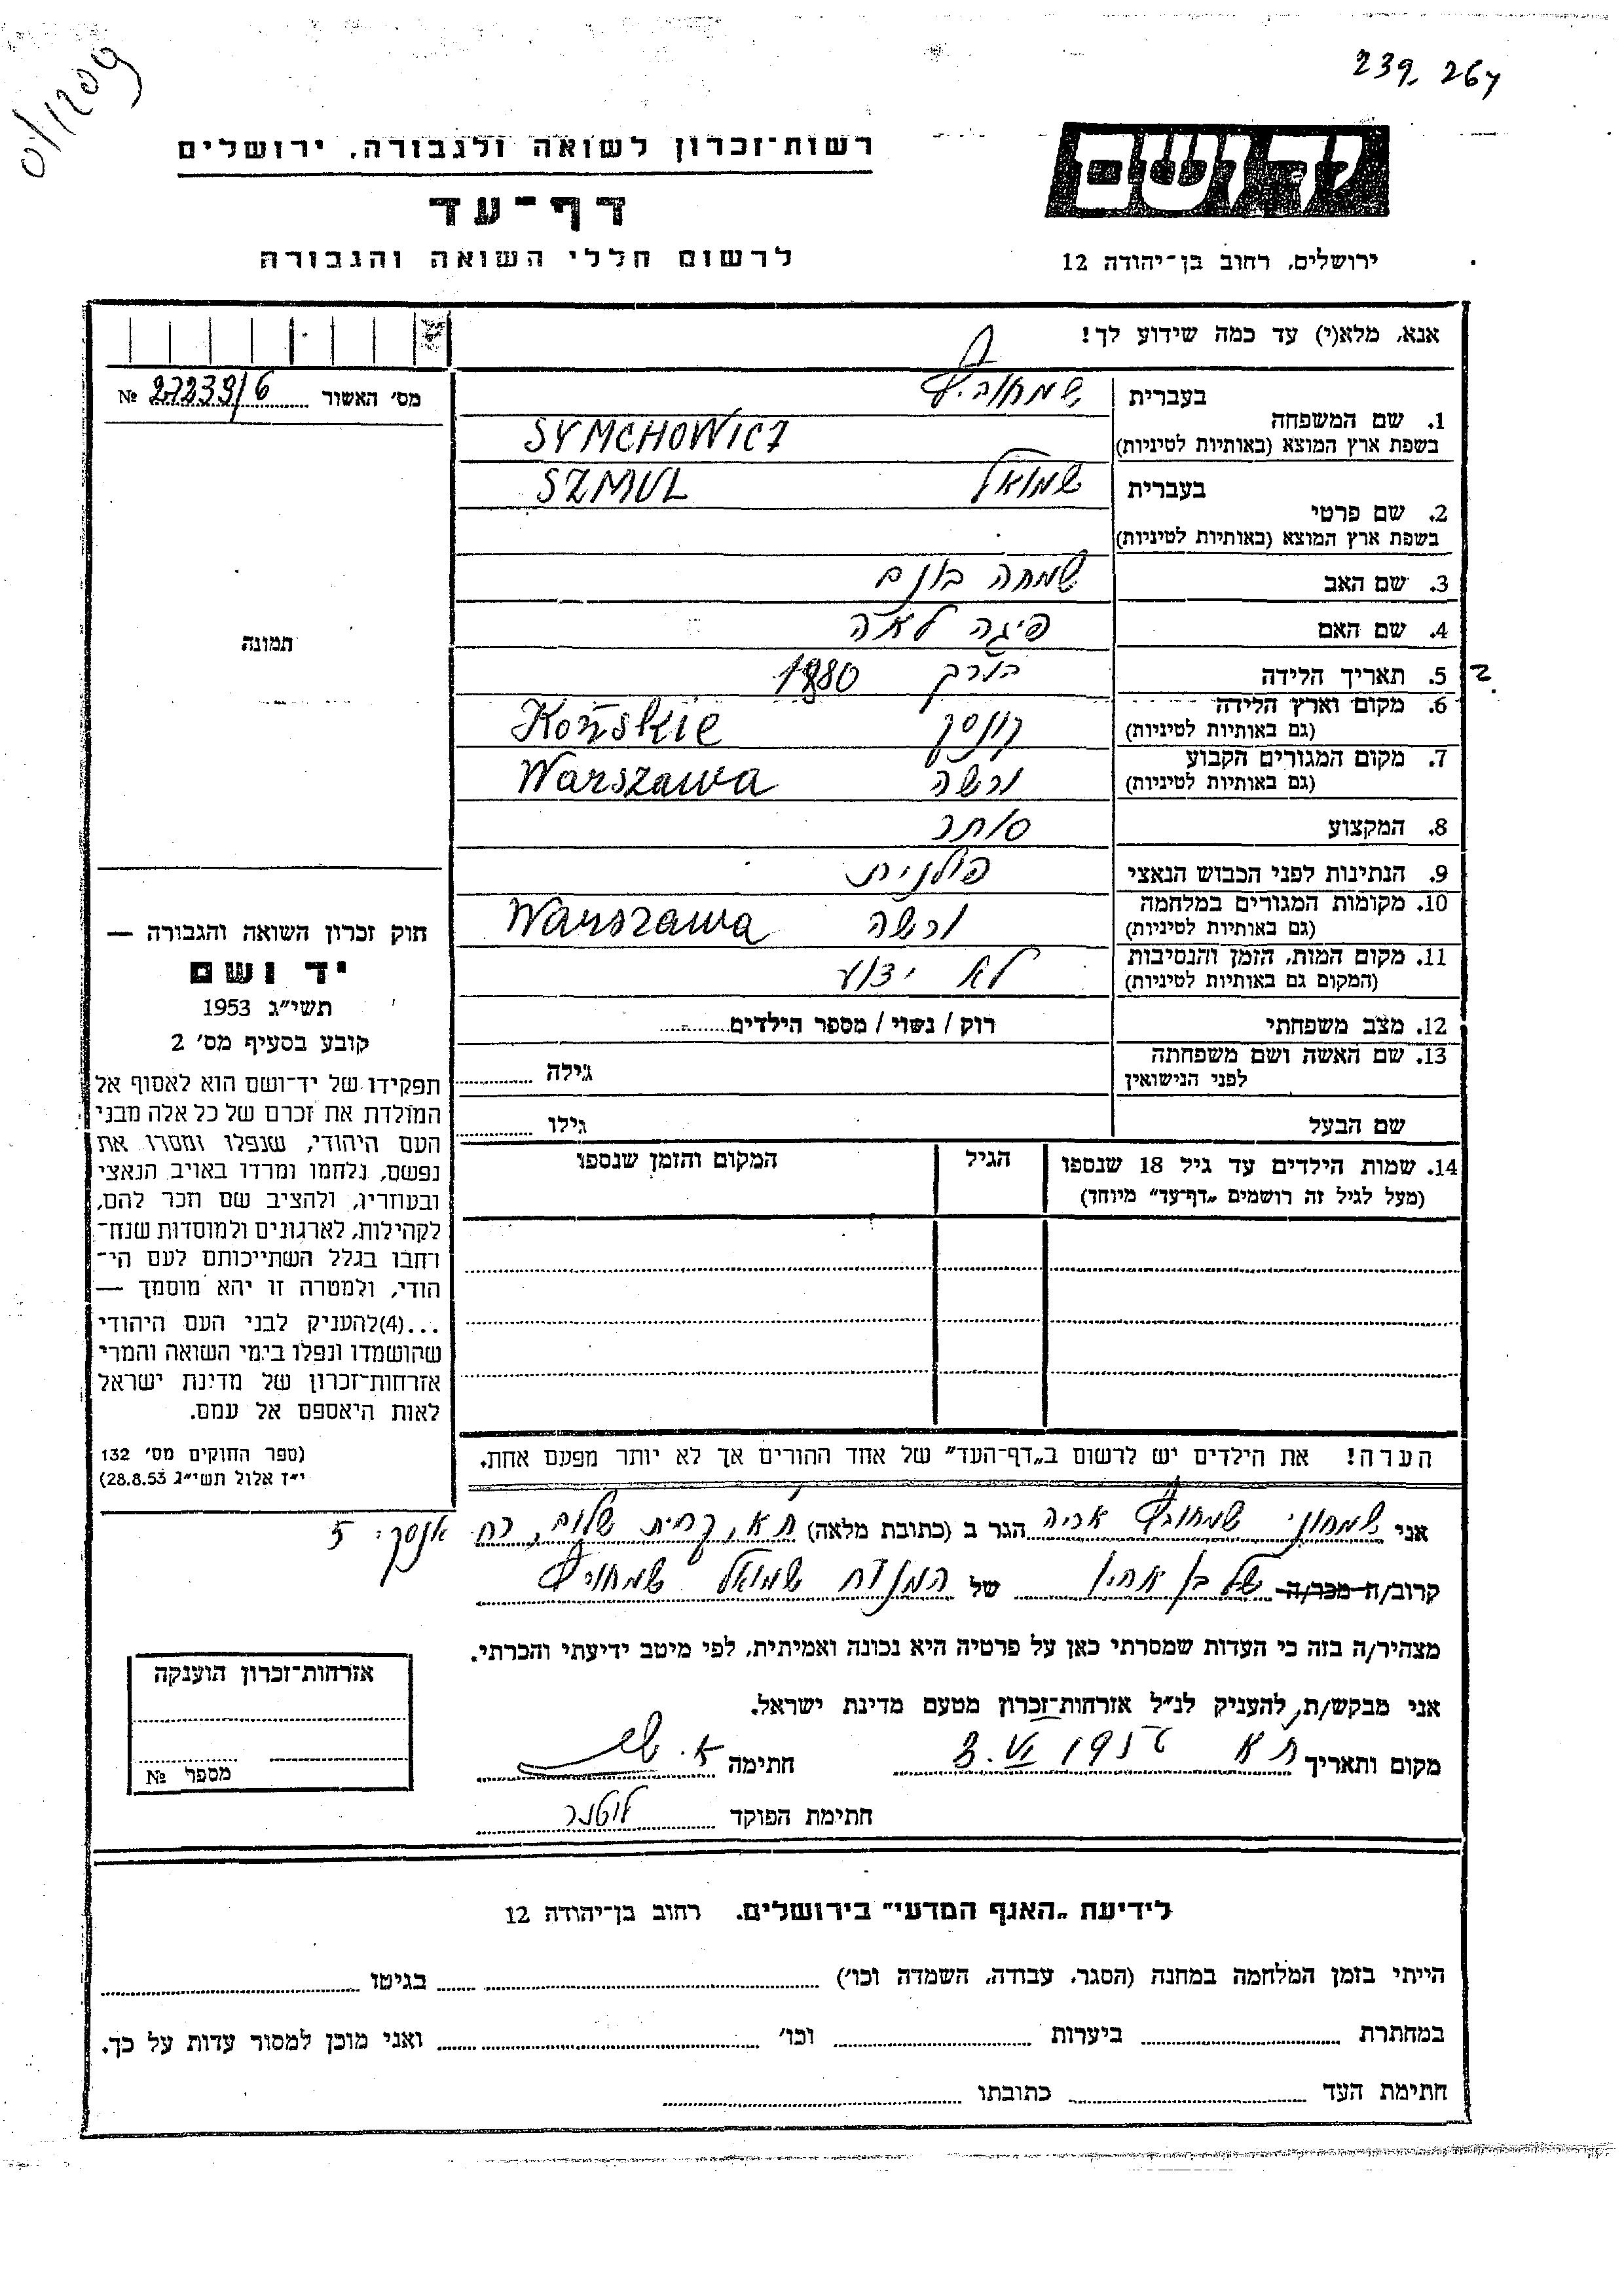 239 267
יד ושם
רשות־זכרון לשואה ולגבורה, ירושלים
דף־עד
לרשום חללי השואה והגבורה
ירושלים, רחוב בן־יהודה 12
אנא, מלא(י) עד כמה שידוע לך!
מס׳ האשור № 27239/6
1. שם המשפחה
בעברית שמחוביץ
בשפת ארץ המוצא (באותיות לטיניות) SYMCHOWICZ
2. שם פרטי
בעברית שמואל SZMUL
בשפת ארץ המוצא (באותיות לטיניות)
3. שם האב שמחה בונם
4. שם האם פיגה לאה
5. תאריך הלידה בערך 1880
6. מקום וארץ הלידה (גם באותיות לטיניות) קונסק Końskie
7. מקום המגורים הקבוע (גם באותיות לטיניות) ורשה Warszawa
8. המקצוע סוחר
9. הנתינות לפני הכבוש הנאצי פולנית
10. מקומות המגורים במלחמה (גם באותיות לטיניות) ורשה Warszawa
11. מקום המות, הזמן והנסיבות (המקום גם באותיות לטיניות) לא ידוע
12. מצב משפחתי רוק / נשוי / מספר הילדים
13. שם האשה ושם משפחתה לפני הנישואין גילה
שם הבעל גילו
14. שמות הילדים עד גיל 18 שנספו (מעל לגיל זה רושמים „דף־עד״ מיוחד)
הגיל
המקום והזמן שנספו
תמונה
חוק זכרון השואה והגבורה —
יד ושם
תשי״ג 1953
קובע בסעיף מס׳ 2
תפקידו של יד־ושם הוא לאסוף אל
המולדת את זכרם של כל אלה מבני
העם היהודי, שנפלו ומסרו את
נפשם, נלחמו ומרדו באויב הנאצי
ובעוזריו, ולהציב שם וזכר להם,
לקהילות, לארגונים ולמוסדות שנח־
רחבו בגלל השתייכותם לעם הי־
הודי, ולמטרה זו יהא מוסמך —
...(4)להעניק לבני העם היהודי
שהושמדו ונפלו בימי השואה והמרי
אזרחות־זכרון של מדינת ישראל
לאות היאספם אל עמם.
(ספר החוקים מס׳ 132
י״ד אלול תשי״ג 28.8.53)
הערה! את הילדים יש לרשום ב„דף־העד״ של אחד ההורים אך לא יותר מפעם אחת.
אני שמחוני שמחוביץ אריה הגר ב (כתובת מלאה) ת״א, קרית שלום, רח אנסקי 5
קרוב/ה מכר/ה של בן אחיו של המנוח שמואל שמחוביץ
מצהיר/ה בזה כי העדות שמסרתי כאן על פרטיה היא נכונה ואמיתית, לפי מיטב ידיעתי והכרתי.
אני מבקש/ת, להעניק לנ״ל אזרחות־זכרון מטעם מדינת ישראל.
מקום ותאריך ת״א 3. VI. 1956 חתימה
חתימת הפוקד
אזרחות־זכרון הוענקה
מספר №
לידיעת „האגף המדעי״ בירושלים. רחוב בן־יהודה 12
הייתי בזמן המלחמה במחנה (הסגר, עבודה, השמדה וכו׳) בגיטו
במחתרת ביערות וכו׳ ואני מוכן למסור עדות על כך.
חתימת העד כתובתו